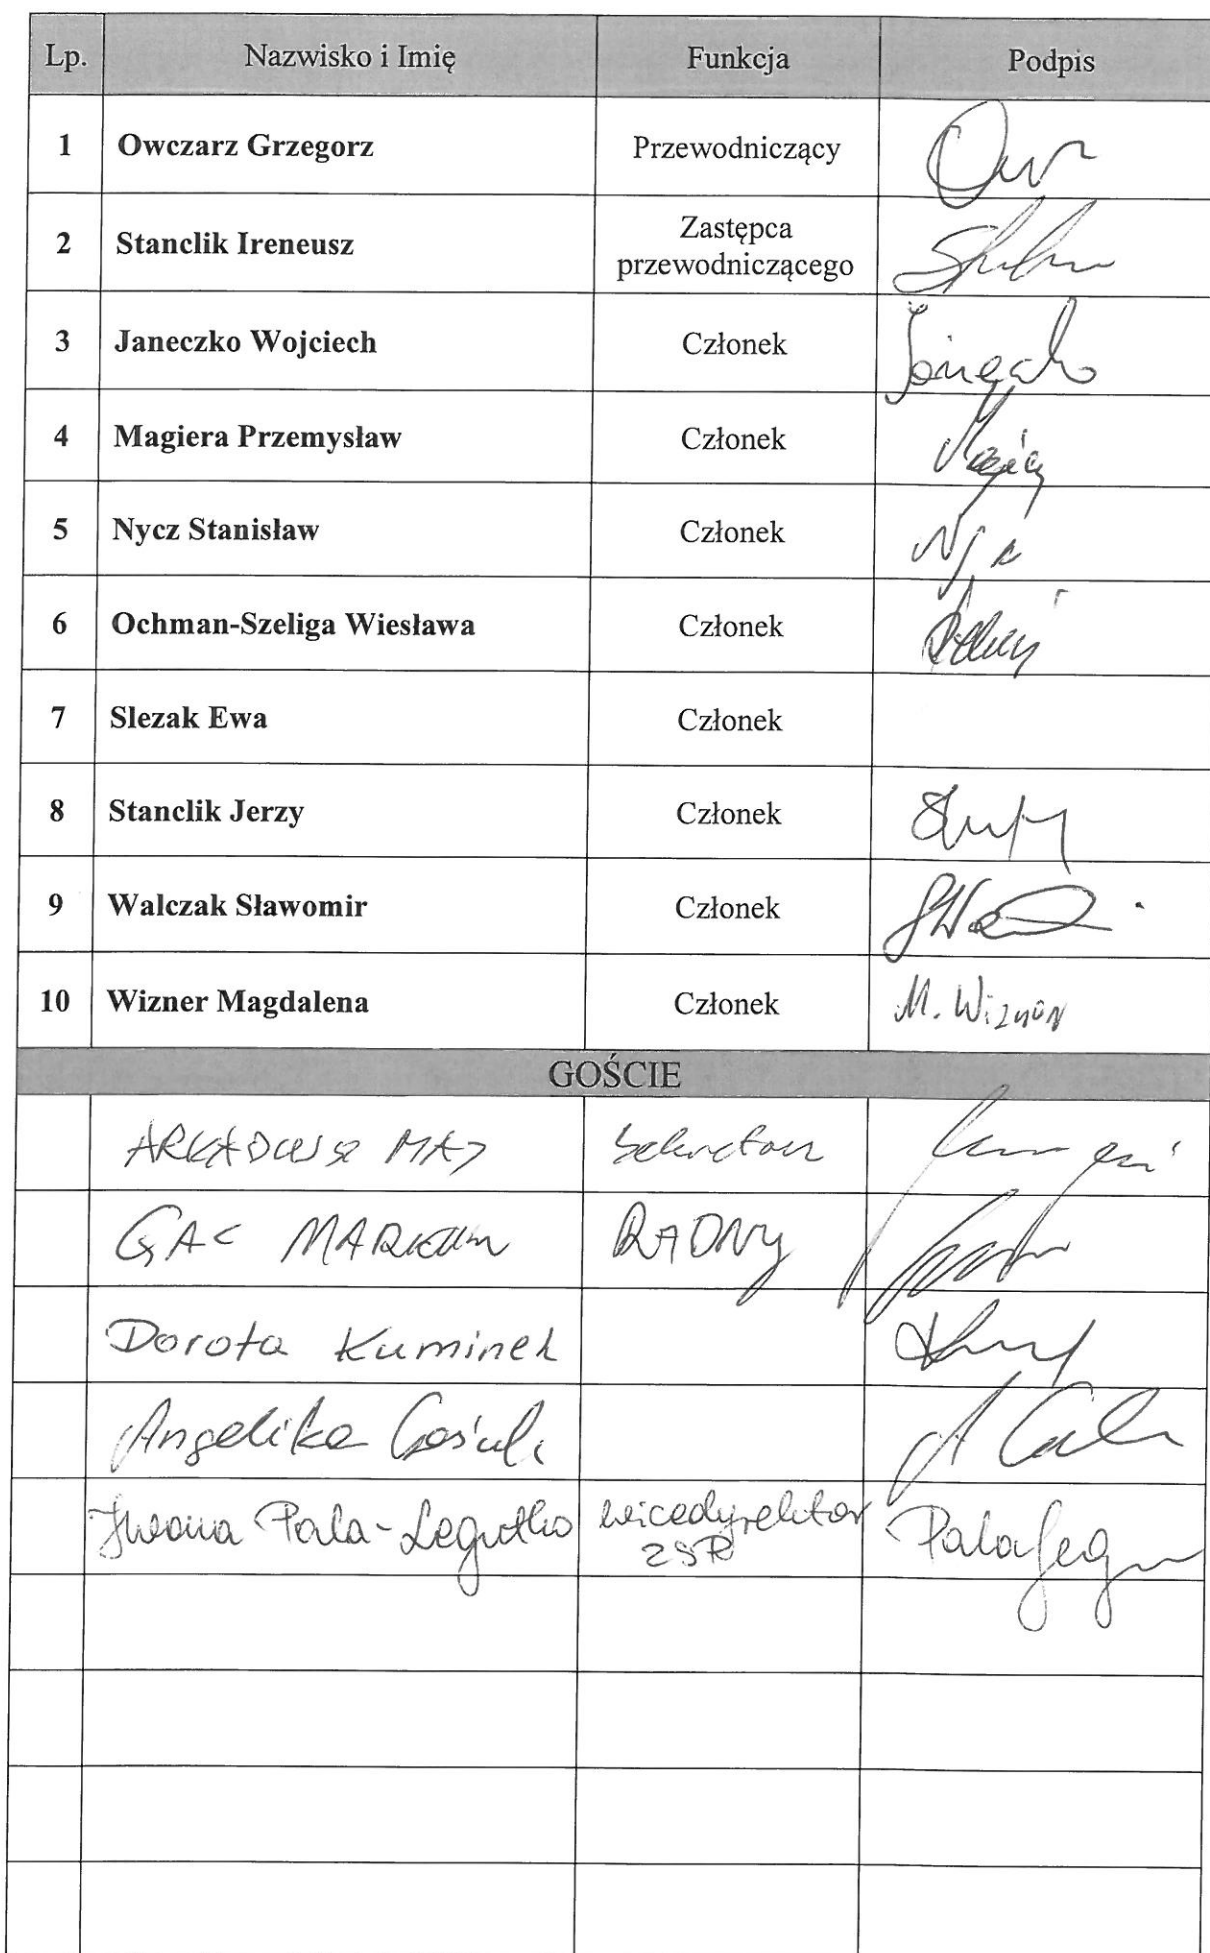 Lp. Nazwisko i Imię Funkcja Podpis
1 Owczarz Grzegorz Przewodniczący
2 Stanclik Ireneusz Zastępca przewodniczącego
3 Janeczko Wojciech Członek
4 Magiera Przemysław Członek
5 Nycz Stanisław Członek
6 Ochman-Szeliga Wiesława Członek
7 Slezak Ewa Członek
8 Stanclik Jerzy Członek
9 Walczak Sławomir Członek
10 Wizner Magdalena Członek M. Wizner
GOŚCIE
ARKADIUSZ MAJ Sekretarz
GAC MARIAN RADNY
Dorota Kuminek
Angelika
Iwona Pala-Legutko wicedyrektor ZSP